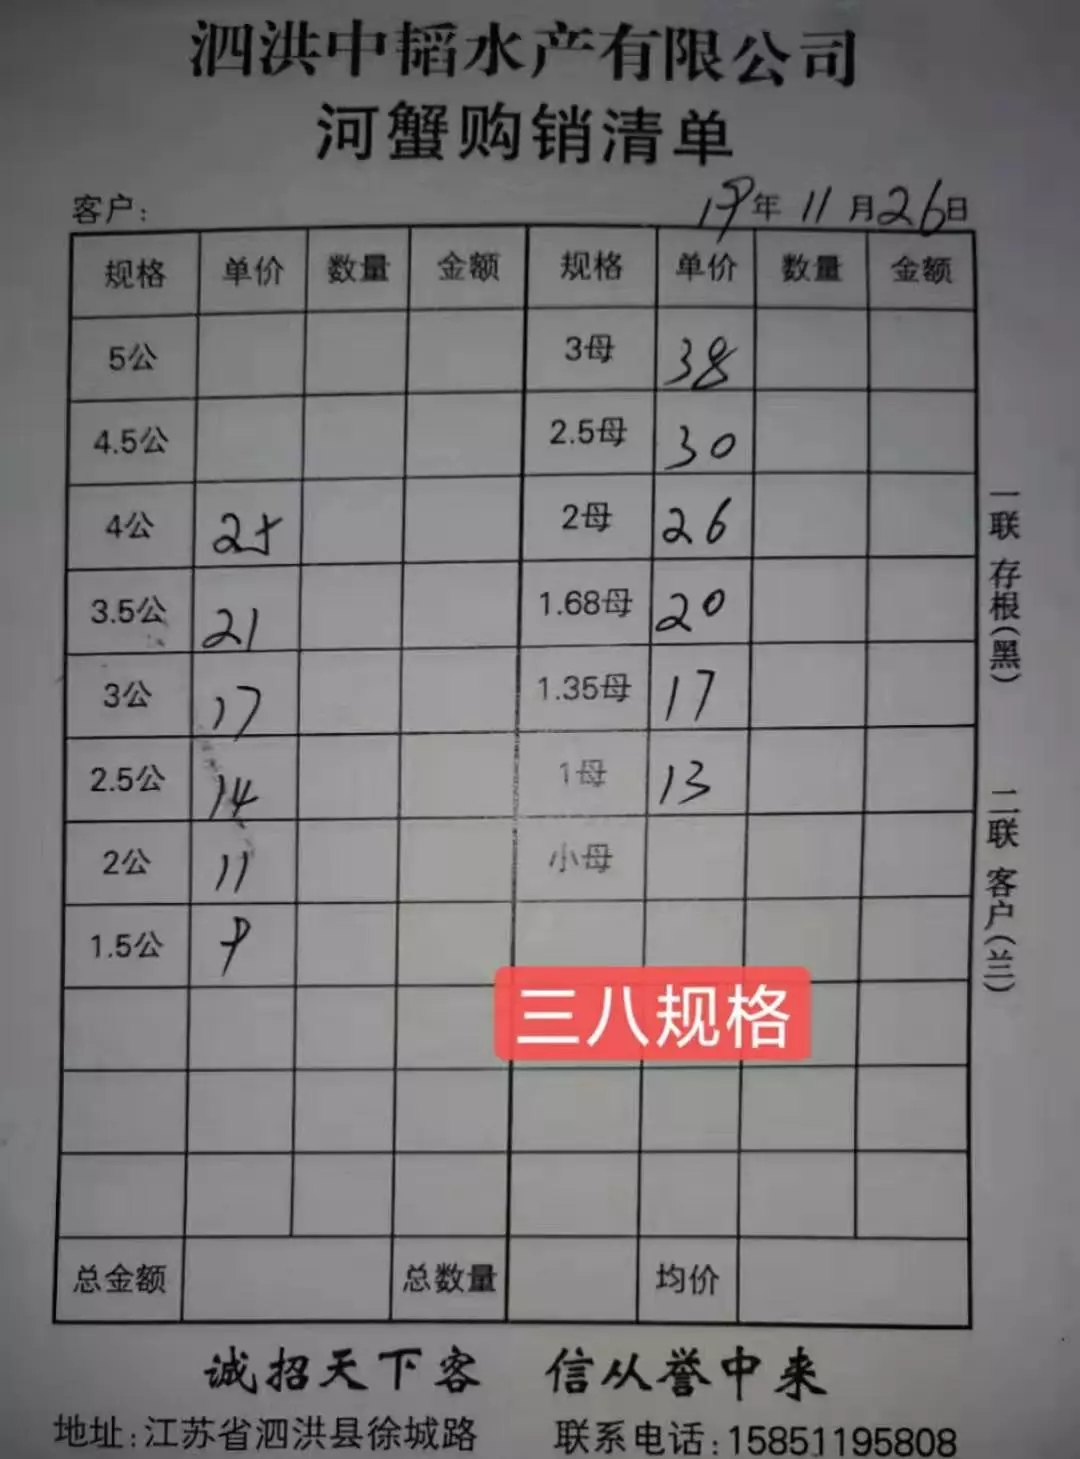 泗洪中韬水产有限公司
河蟹购销清单
客户: 19年11月26日
规格 单价 数量 金额 规格 单价 数量 金额
5公 3母 38
4.5公 2.5母 30
4公 25 2母 26
3.5公 21 1.68母 20
3公 17 1.35母 17
2.5公 14 1母 13
2公 11 小母
1.5公 9
三八规格
总金额 总数量 均价
一联 存根(黑) 二联 客户(兰)
诚招天下客 信从誉中来
地址:江苏省泗洪县徐城路 联系电话:15851195808